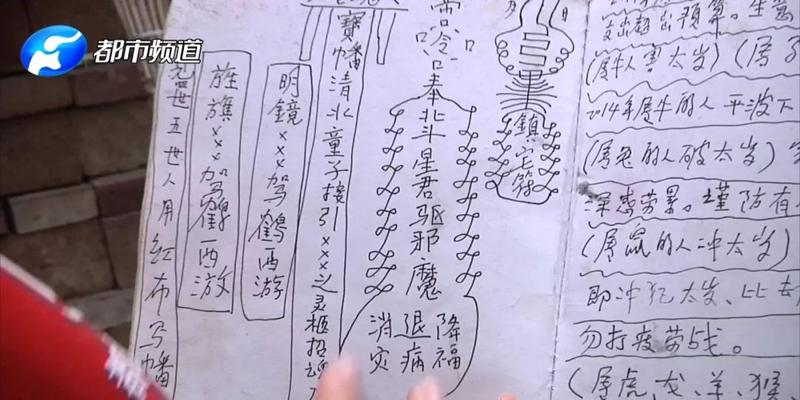 都市频道
九世五世人用红布写幡
旌旗×××驾鹤西游
明鏡×××驾鹤西游
寶幡清北童子接引×××之灵柩招魂
唵吽奉北斗星君驱邪魔
消灾
退病
降福
月
日
鎮宅符
支出超出预算。生
(属牛人害太岁)(属
2014年属牛的人平波下
(属兔的人破太岁)
深感劳累。谨防有
(属鼠的人冲太岁)
即冲犯太岁、比
勿打疲劳战。
(属虎、龙、羊、猴、